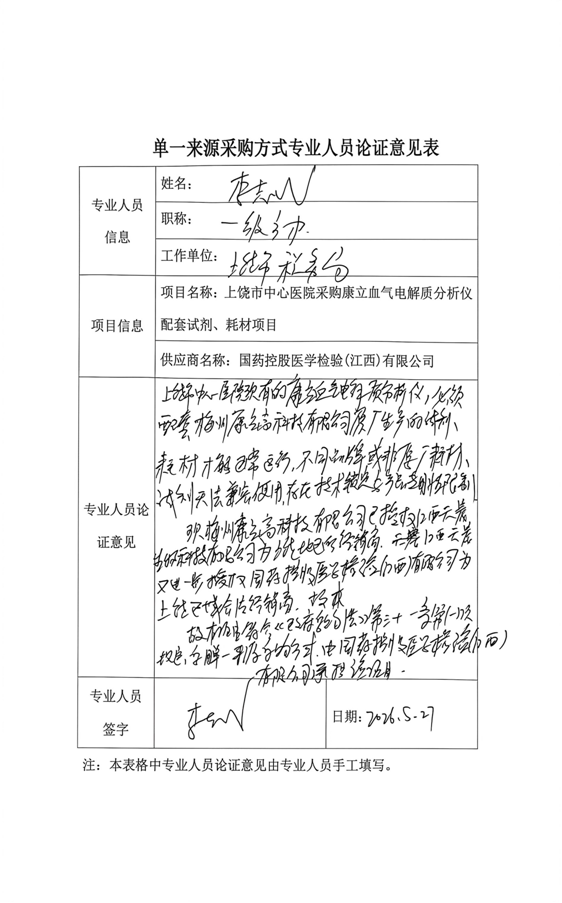 单一来源采购方式专业人员论证意见表
专业人员
信息
姓名：李志
职称：一级
工作单位：上饶市
项目信息
项目名称：上饶市中心医院采购康立血气电解质分析仪
配套试剂、耗材项目
供应商名称：国药控股医学检验(江西)有限公司
专业人员论
证意见
上饶市中心医院现有的康立血气电解质分析仪，必须
配套梅州康立高科技有限公司原厂生产的试剂、
耗材才能正常运行，不同品牌或非原厂耗材、
试剂无法兼容使用，存在技术
现梅州康立高科技有限公司已授权江西天
科技有限公司为上饶地区经销商，江西天
又进一步授权国药控股医学检验(江西)有限公司为
上饶区域合法经销商。
故本项目符合《政府采购法》第三十一条第一款
规定，单一来源方式，由国药控股医学检验(江西)
有限公司承担该项目.
专业人员
签字
李志
日期：2026.5.27
注：本表格中专业人员论证意见由专业人员手工填写。